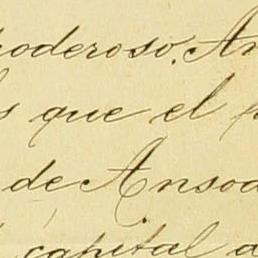 poderoso. An
s que el p
de Ansoa
capital d